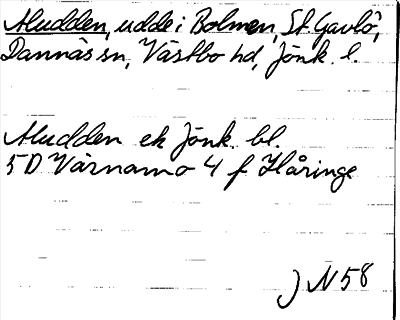 Aludden, udde i Bolmen, St Gavlö,
Dannäs sn, Västbo hd, Jönk. l.
Aludden ek Jönk. bl.
5D Värnamo 4 f Håringe
J N 58